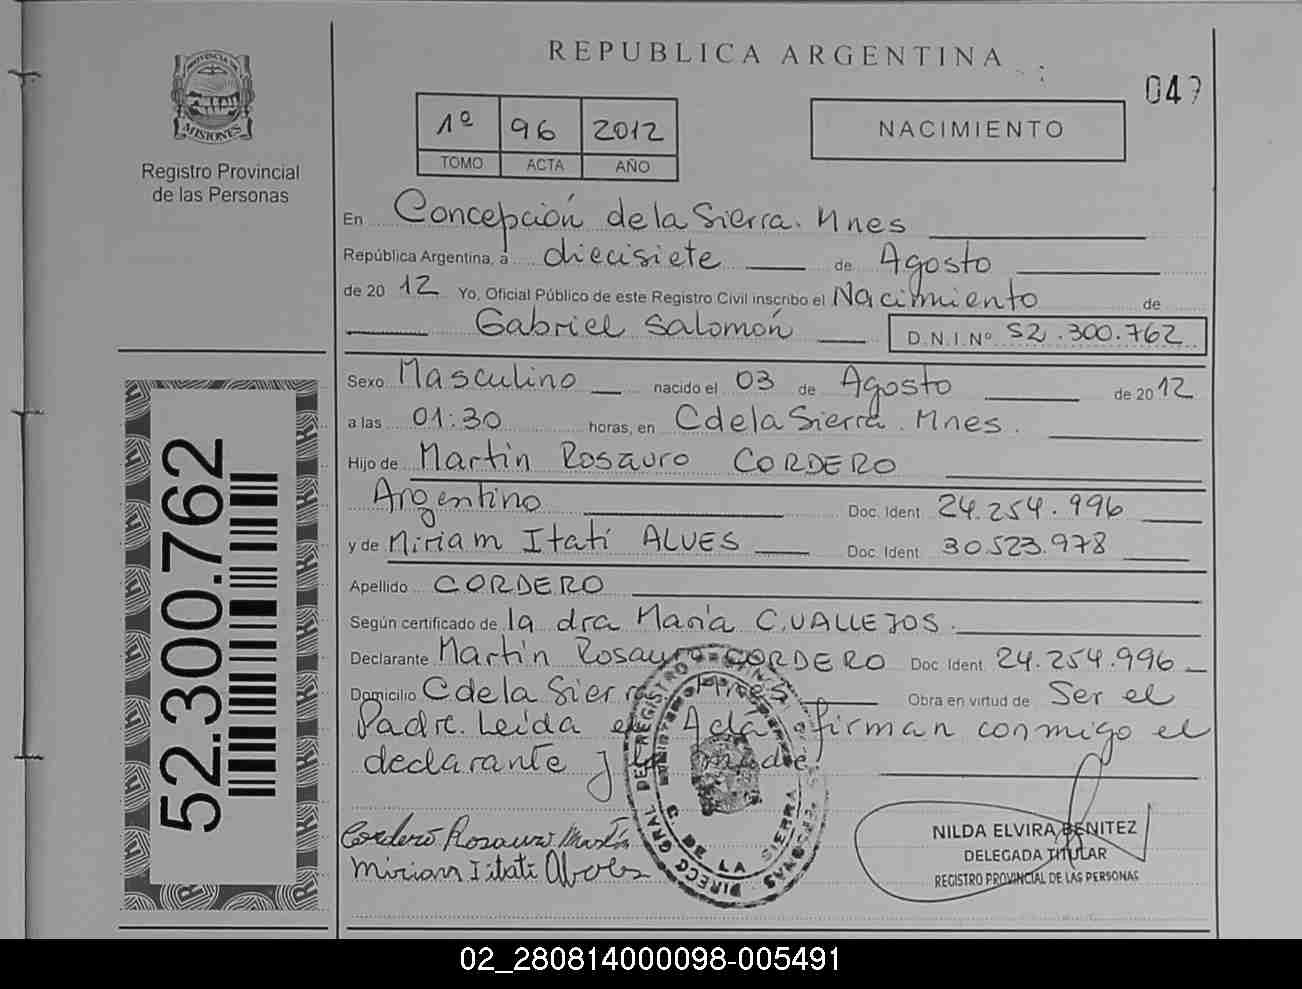 REPUBLICA ARGENTINA
PROVINCIA DE
MISIONES
Registro Provincial
de las Personas
1º 96 2012
TOMO ACTA AÑO
NACIMIENTO
En Concepción de la Sierra. Mnes
República Argentina, a diecisiete de Agosto
de 2012 Yo, Oficial Público de este Registro Civil inscribo el Nacimiento de
Gabriel Salomón D.N.I.Nº 52.300.762
Sexo Masculino nacido el 03 de Agosto de 2012
a las 01:30 horas, en C de la Sierra. Mnes.
Hijo de Martin Rosauro CORDERO
Argentino Doc. Ident 24.254.996
y de Miriam Itatí ALVES Doc. Ident 30.523.978
Apellido CORDERO
Según certificado de la dra María C. VALLEJOS.
Declarante Martin Rosauro CORDERO Doc. Ident. 24.254.996
Domicilio C de la Sierra Mnes Obra en virtud de Ser el
Padre. Leida el Acta firman conmigo el
declarante y la madre
Cordero Rosauro Martín
Miriam Itati
NILDA ELVIRA BENITEZ
DELEGADA TITULAR
REGISTRO PROVINCIAL DE LAS PERSONAS
52.300.762
02_280814000098-005491